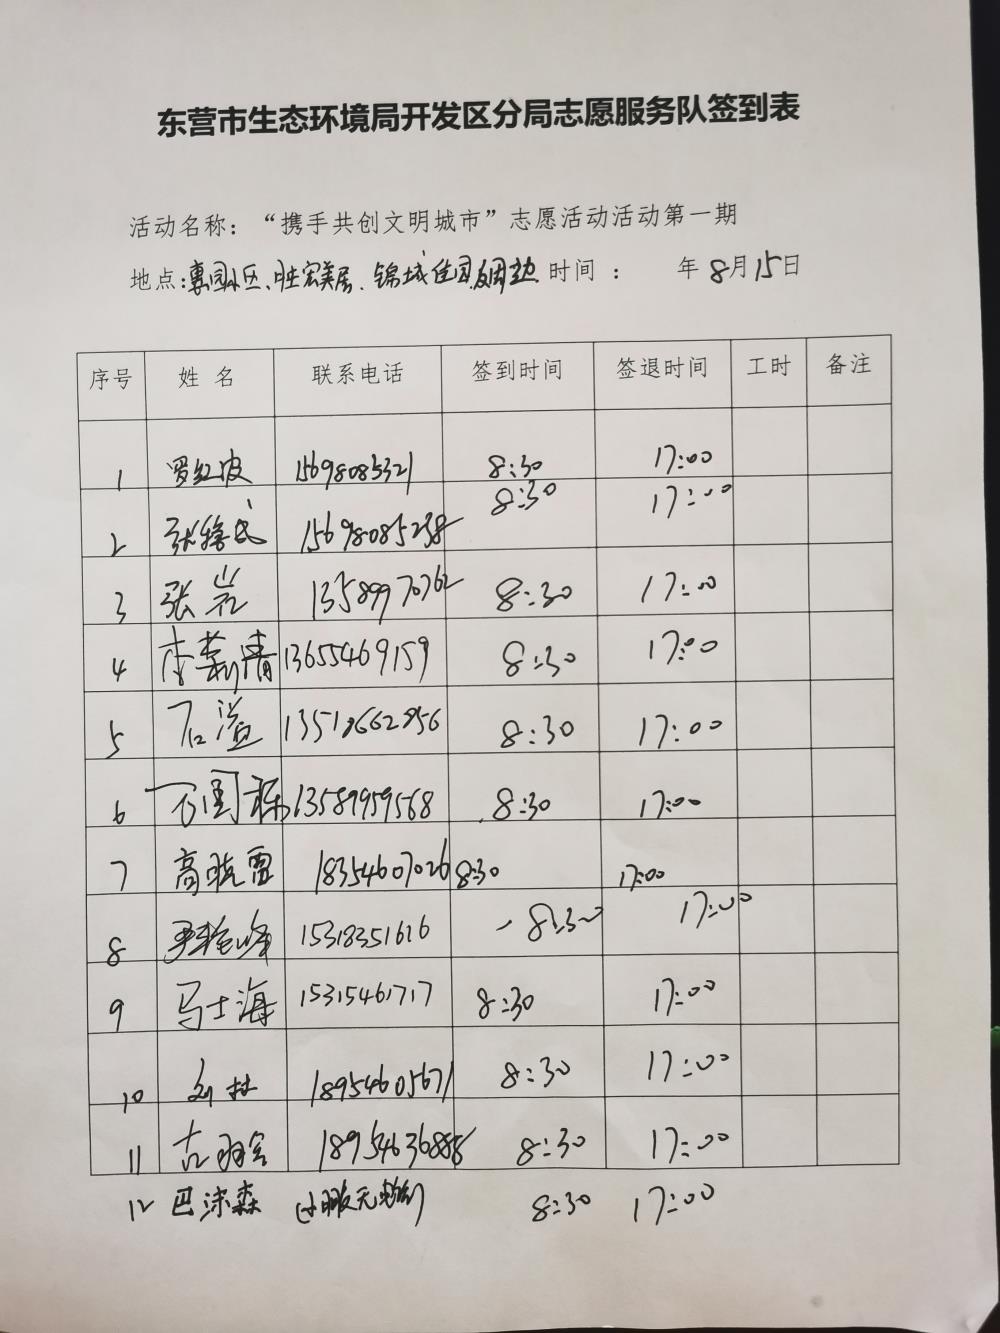 东营市生态环境局开发区分局志愿服务队签到表
活动名称：“携手共创文明城市”志愿活动活动第一期
地点：惠园小区、胜宏美居、锦城佳园及周边 时间： 年8月15日
序号 姓名 联系电话 签到时间 签退时间 工时 备注
1 罗红波 15698085321 8:30 17:00
2 张 15698085238 8:30 17:00
3 张岩 13589970762 8:30 17:00
4 李菊清 13655469159 8:30 17:00
5 石溢 8:30 17:00
6 石国栋 13589959568 8:30 17:00
7 高晓雷 18354607026 8:30 17:00
8 15318351616 8:30 17:00
9 马士海 15315461717 8:30 17:00
10 刘林 18954605671 8:30 17:00
11 古 18954636888 8:30 17:00
12 巴沫森 8:30 17:00